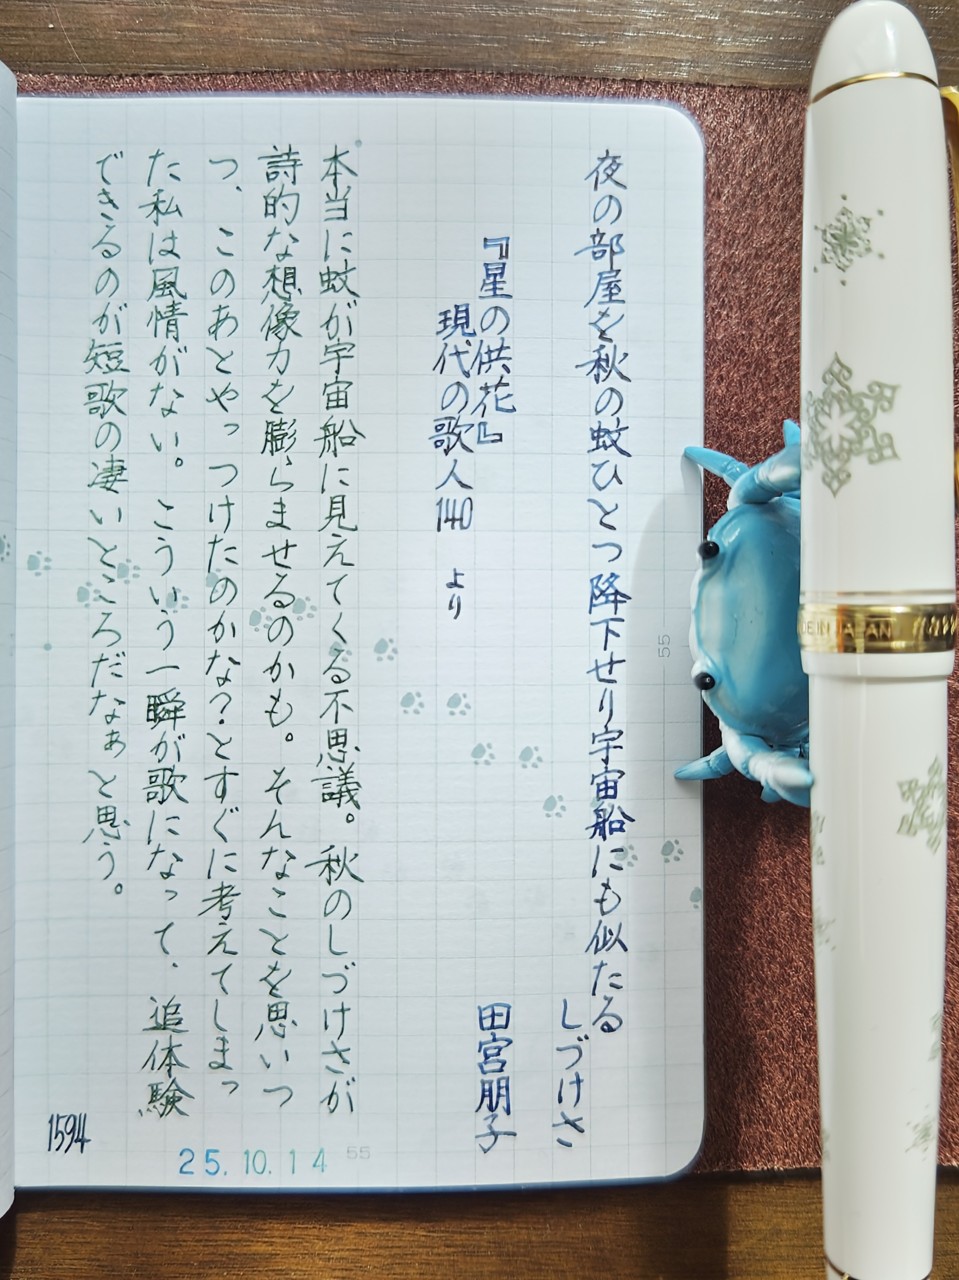 夜の部屋を秋の蚊ひとつ降下せり宇宙船にも似たる
しづけさ
田宮朋子
『星の供花』
現代の歌人140 より
本当に蚊が宇宙船に見えてくる不思議。秋のしづけさが
詩的な想像力を膨らませるのかも。そんなことを思いつ
つ、このあとやっつけたのかな?とすぐに考えてしまっ
た私は風情がない。こういう一瞬が歌になって、追体験
できるのが短歌の凄いところだなぁと思う。
1594
25.10.14
55
55
JAPAN